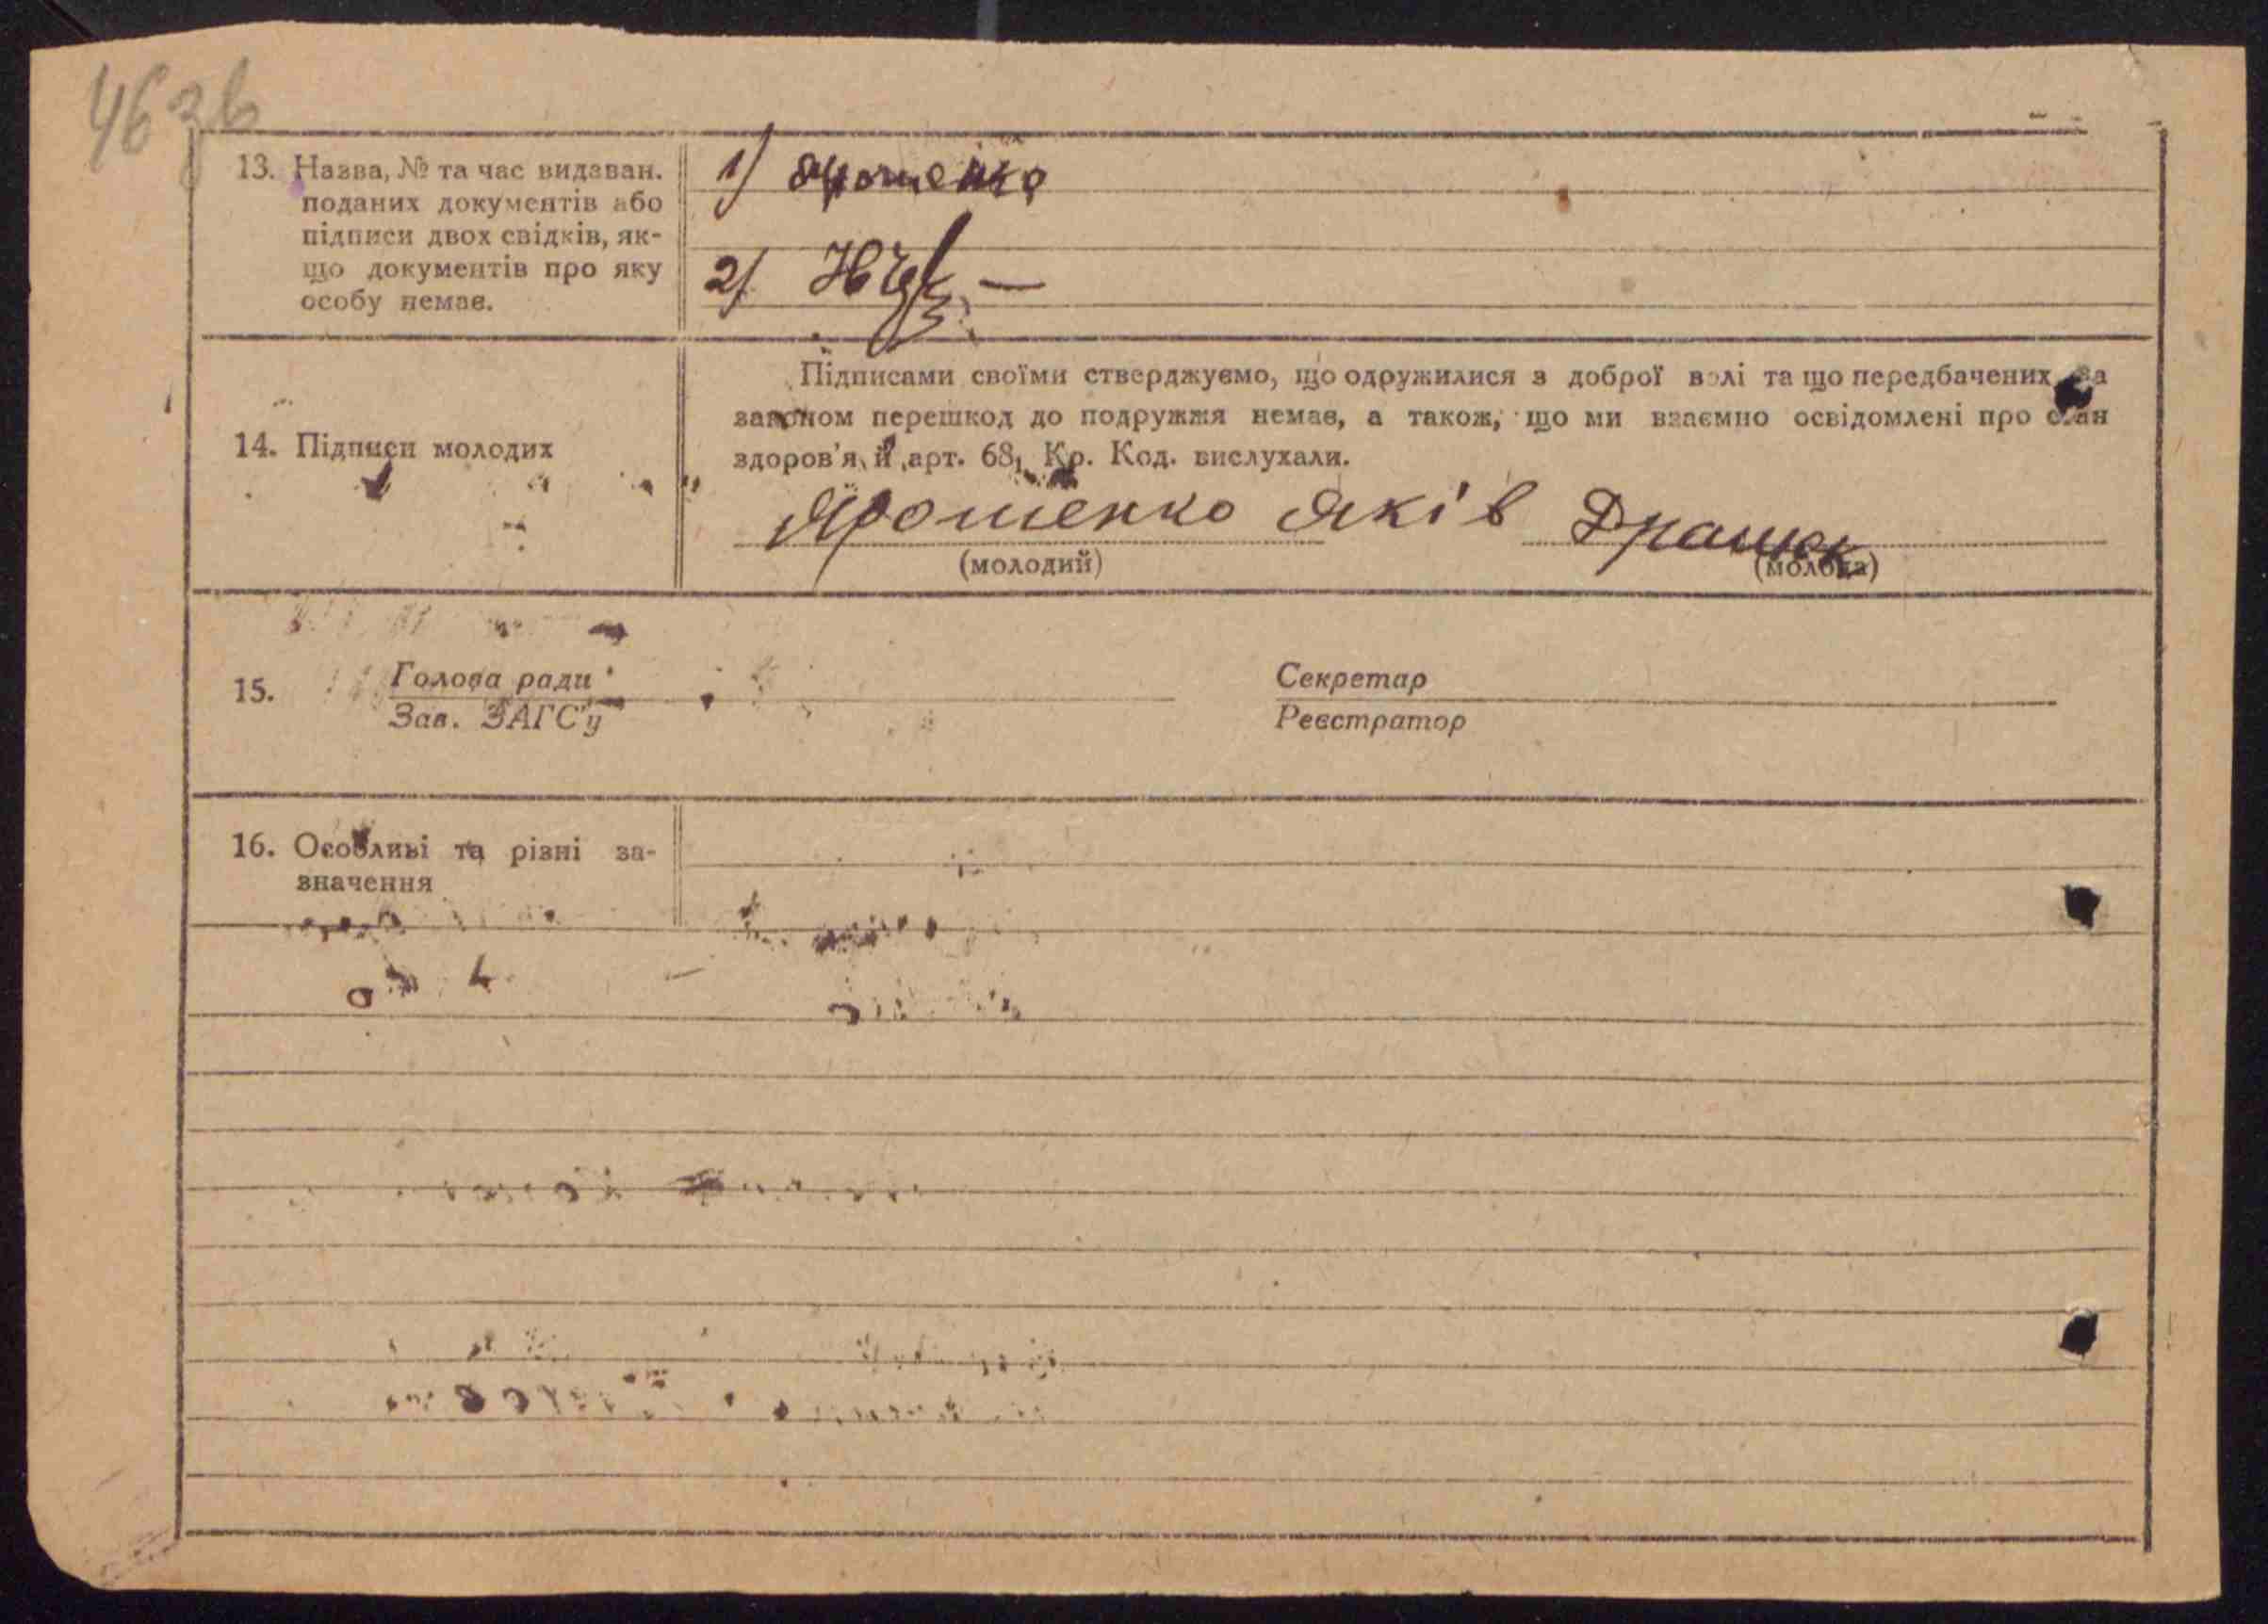 46 зв
13. Назва, № та час видаван.
поданих документів або
підписи двох свідків, як-
що документів про яку
особу немає.
1) Ярошенко
2)
14. Підписи молодих
Підписами своїми стверджуємо, що одружилися з доброї волі та що передбачених за
законом перешкод до подружжя немає, а також, що ми взаємно освідомлені про стан
здоров'я й арт. 68, Кр. Код. вислухали.
Ярошенко Яків
(молодий)
(молода)
15. Голова ради
Зав. ЗАГС'у
Секретар
Реєстратор
16. Особливі та різні за-
значення